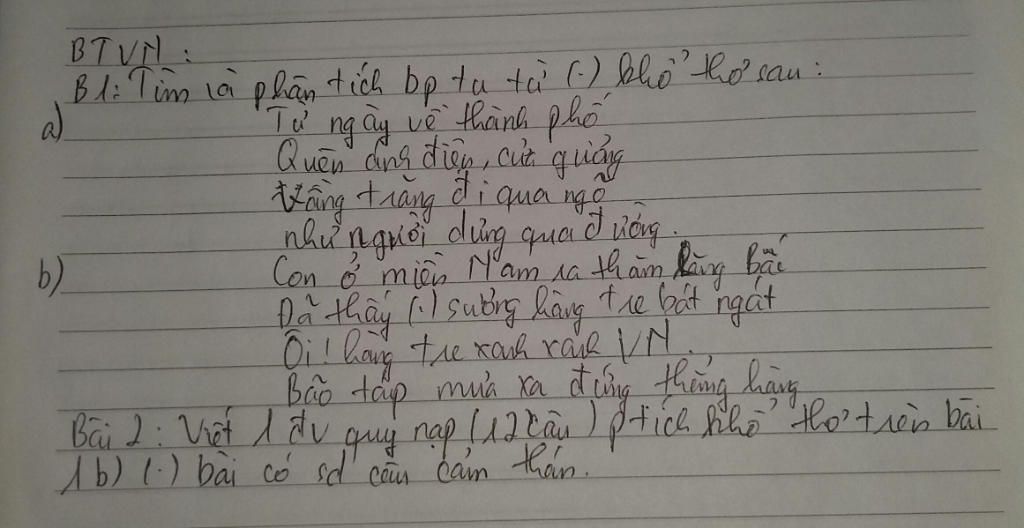 BTVN:
B1: Tìm và phân tích bp tu từ (.) khổ thơ sau:
a) Từ ngày về thành phố
Quen ánh điện, cửa gương
Vầng trăng đi qua ngõ
như người dưng qua đường.
b) Con ở miền Nam ra thăm lăng bác
Đã thấy (.) sương hàng tre bát ngát
Ôi! hàng tre xanh xanh VN.
Bão táp mưa xa đứng thẳng hàng
Bài 2: Viết 1 đv quy nạp (12 câu) ptích khổ thơ trên bài
1b) (.) bài có sd câu cảm thán.